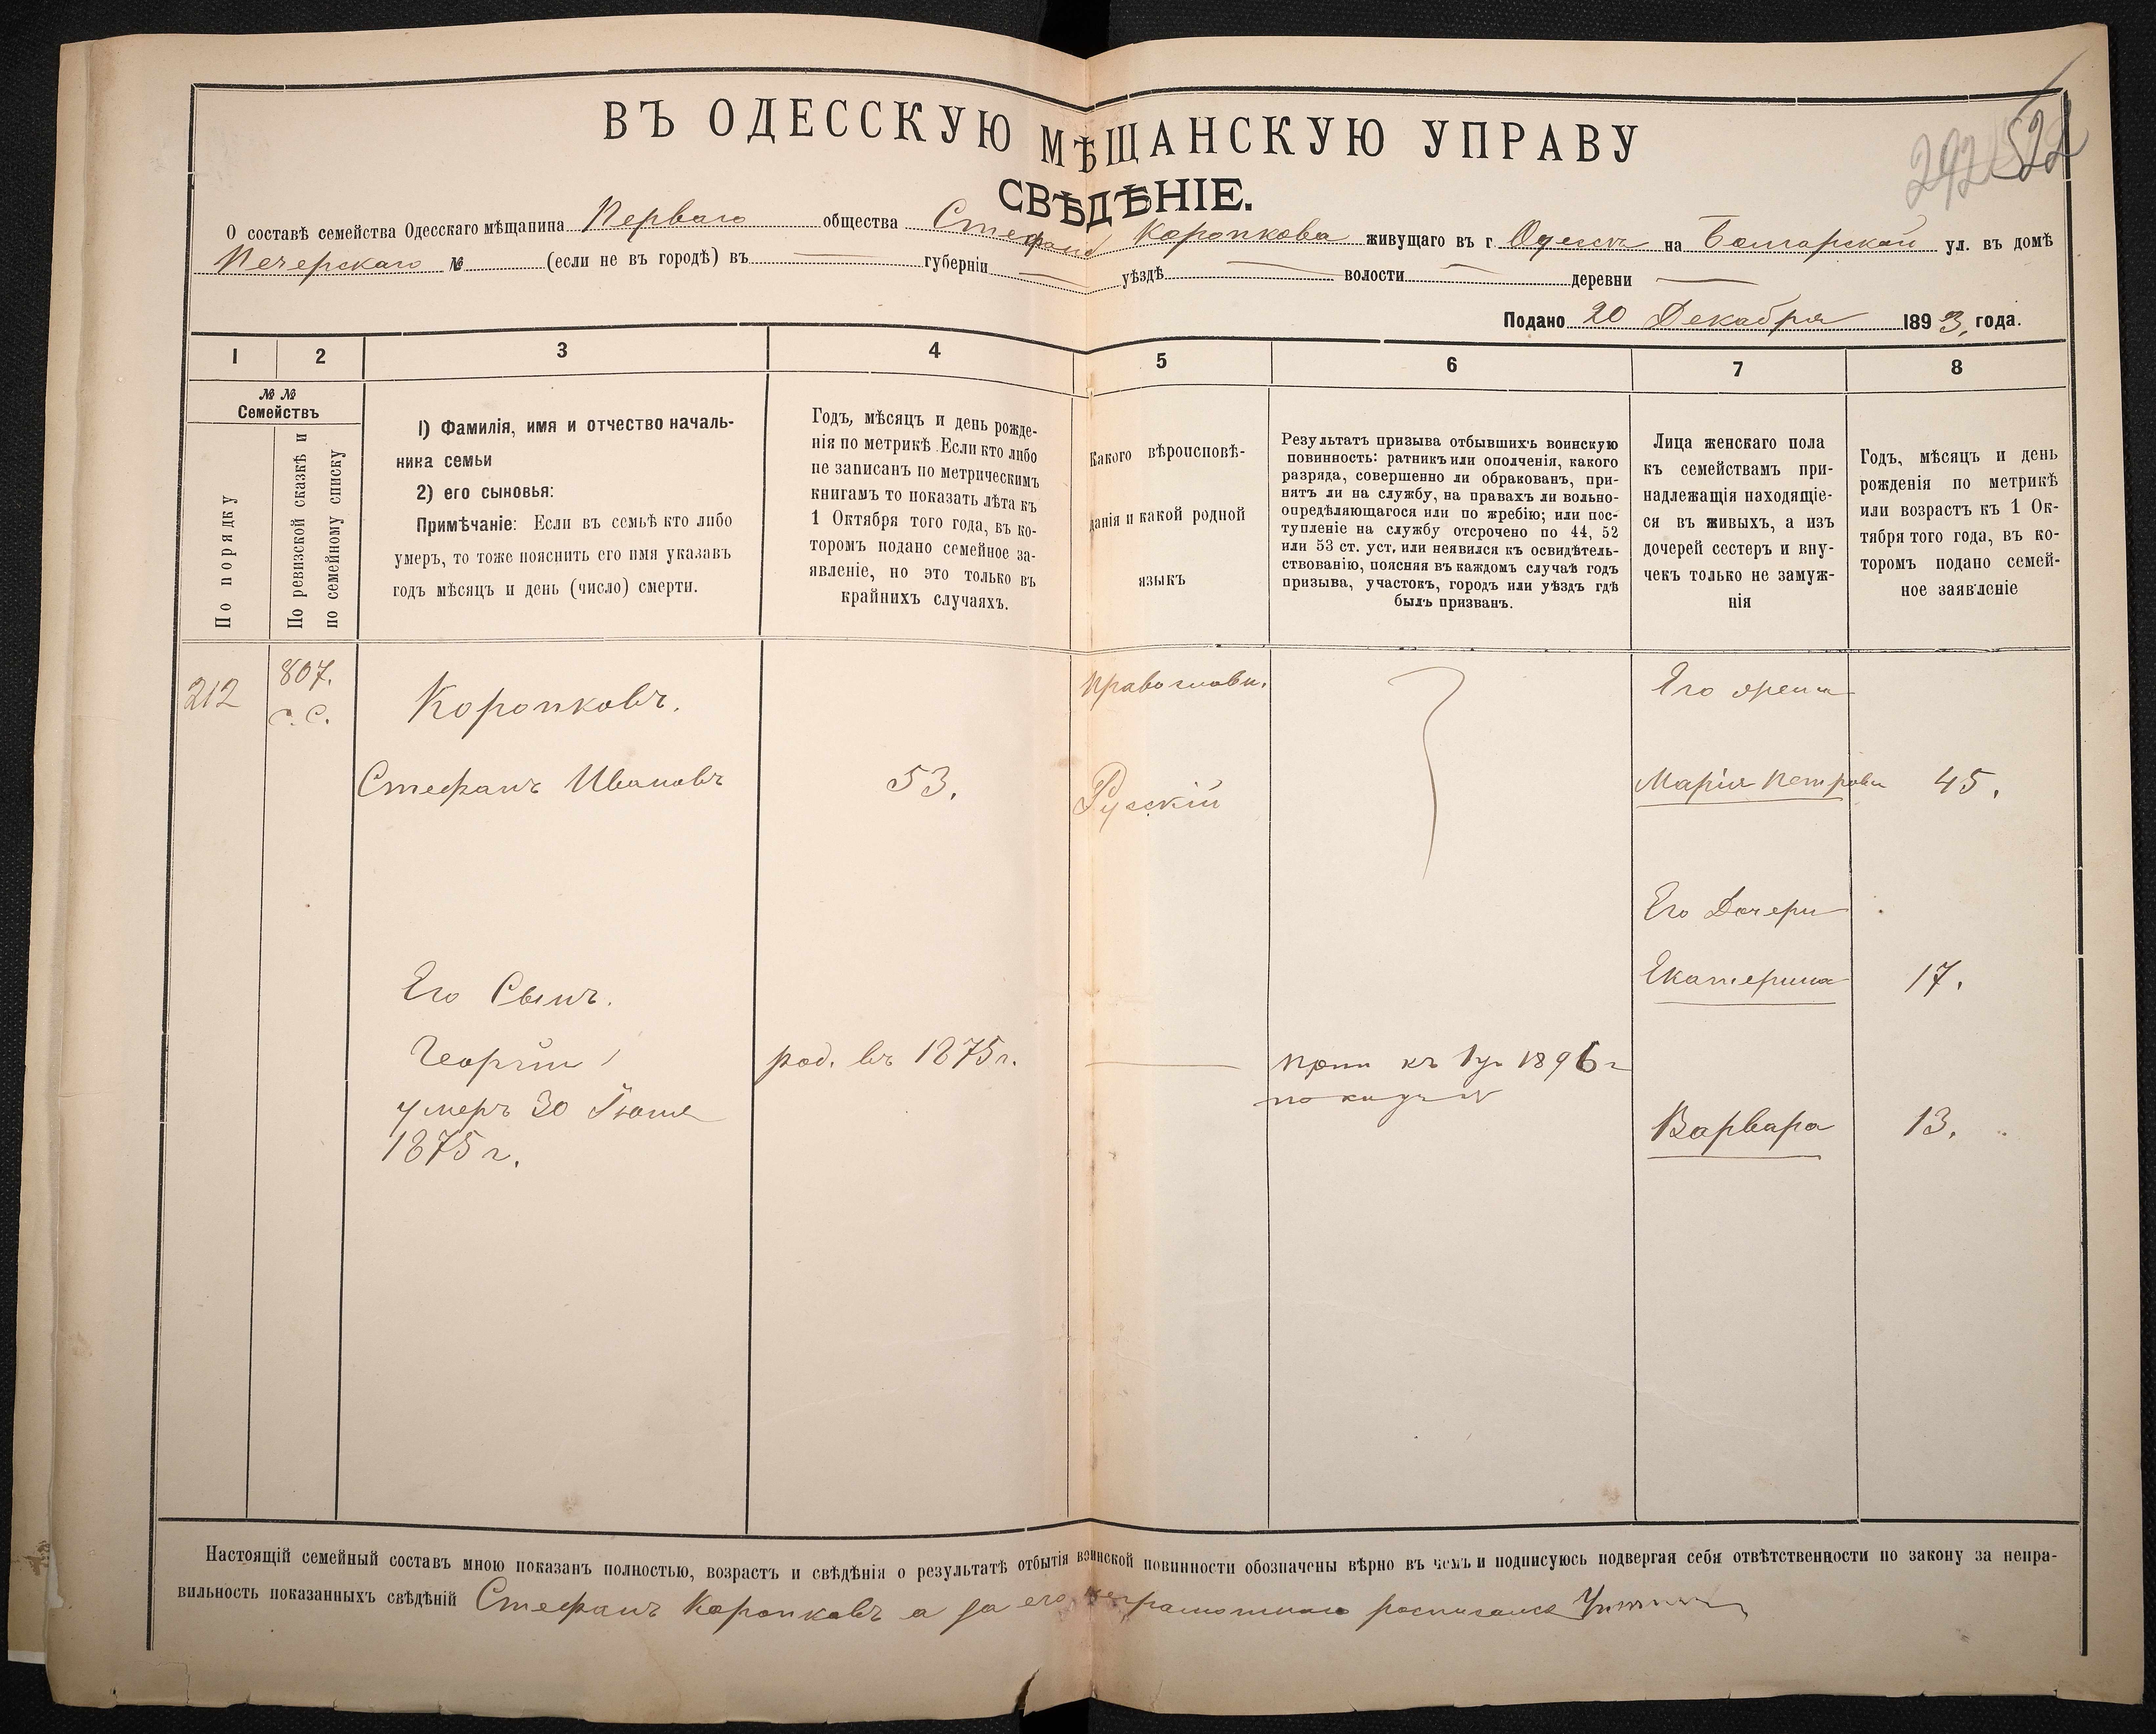 ВЪ ОДЕССКУЮ МѢЩАНСКУЮ УПРАВУ
292 522
СВѢДѢНІЕ.
О составѣ семейства Одесскаго мѣщанина Перваго общества Стефана Коропкова живущаго въ г. Одессѣ на Болгарской ул. въ домѣ
Печерскаго № (если не въ городѣ) въ — губерніи — уѣздѣ — волости — деревни —
Подано 20 Декабря 1893, года.
1 2 3 4 5 6 7 8
№ №
Семействъ
По порядку
По ревизской сказкѣ и
по семейному списку
1) Фамилія, имя и отчество началь-
ника семьи
2) его сыновья:
Примѣчаніе: Если въ семьѣ кто либо
умеръ, то тоже пояснить его имя указавъ
годъ мѣсяцъ и день (число) смерти.
Годъ, мѣсяцъ и день рожде-
нія по метрикѣ. Если кто либо
не записанъ по метрическимъ
книгамъ то показать лѣта къ
1 Октября того года, въ ко-
торомъ подано семейное за-
явленіе, но это только въ
крайнихъ случаяхъ.
Какого вѣроисповѣ-
данія и какой родной
языкъ
Результатъ призыва отбывшихъ воинскую
повинность: ратникъ или ополченія, какого
разряда, совершенно ли обракованъ, при-
нятъ ли на службу, на правахъ ли вольно-
опредѣляющагося или по жребію; или пос-
тупленіе на службу отсрочено по 44, 52
или 53 ст. уст, или неявился къ освидѣтель-
ствованію, поясняя въ каждомъ случаѣ годъ
призыва, участокъ, городъ или уѣздъ гдѣ
былъ призванъ.
Лица женскаго пола
къ семействамъ при-
надлежащія находящіе-
ся въ живыхъ, а изъ
дочерей сестеръ и вну-
чекъ только не замуж-
нія
Годъ, мѣсяцъ и день
рожденія по метрикѣ
или возрастъ къ 1 Ок-
тября того года, въ ко-
торомъ подано семей-
ное заявленіе
212 807. Коропковъ. Православн. Его жена
с. с.
Стефанъ Ивановъ 53. Русскій Марія Петровн 45.
Его Дочери
Екатерина 17.
Его Сынъ.
Георгій род. въ 1875 г. — къ 1896 г
умеръ 30 Іюня
1875 г.
Варвара 13.
Настоящій семейный составъ мною показанъ полностью, возрастъ и свѣдѣнія о результатѣ отбытія воинской повинности обозначены вѣрно въ чемъ и подписуюсь подвергая себя отвѣтственности по закону за непра-
вильность показанныхъ свѣдѣній Стефанъ Коропковъ а за его неграмотнаго росписался